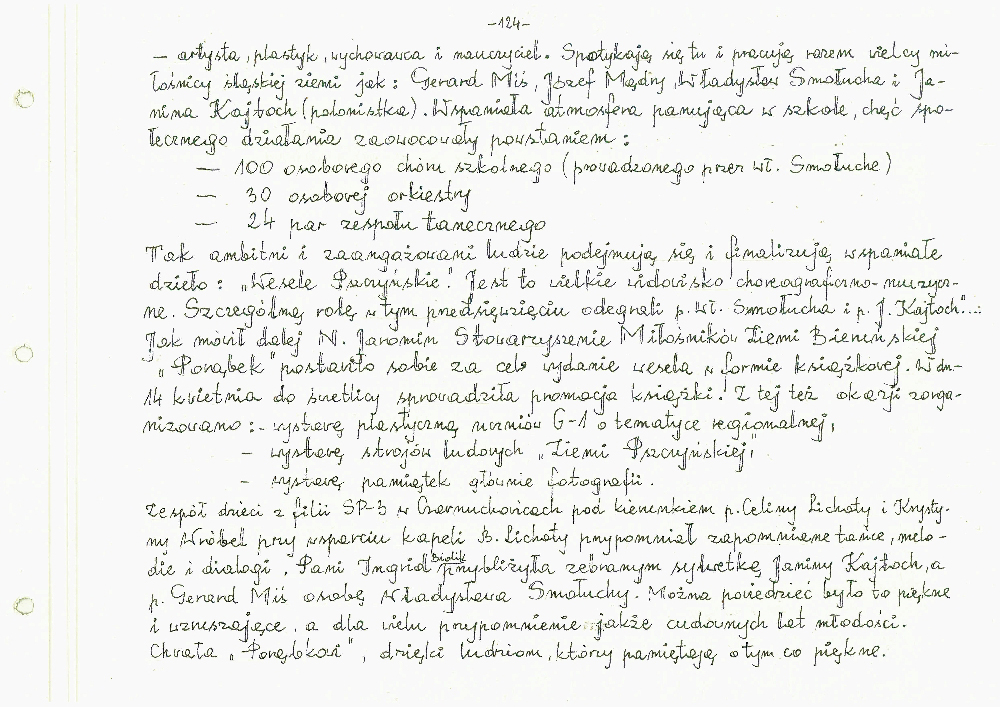 -124-
- artysta, plastyk, wychowawca i nauczyciel. Spotykają się tu i pracują razem wielcy mi-
łośnicy śląskiej ziemi jak: Gerard Miś, Józef Mądry, Władysław Smołucha i Ja-
nina Kajtoch (polonistka). Wspaniała atmosfera panująca w szkole, chęć spo-
łecznego działania zaowocowały powstaniem:
- 100 osobowego chóru szkolnego (prowadzonego przez wł. Smołuchę)
- 30 osobowej orkiestry
- 24 par zespołu tanecznego
Tak ambitni i zaangażowani ludzie podejmują się i finalizują wspaniałe
dzieło: „Wesele Pszczyńskie". Jest to wielkie widowisko choreograficzno-muzycz-
ne. Szczególną rolę w tym przedsięwzięciu odegrali p. Wł. Smołucha i p. J. Kajtoch"...
Jak mówił dalej N. Jaromin Stowarzyszenie Miłośników Ziemi Bieruńskiej
„Porąbek" postawiło sobie za cel wydanie wesela w formie książkowej. W dn.
14 kwietnia do świetlicy sprowadziła promocja książki. Z tej też okazji zorga-
nizowano: - wystawę plastyczną uczniów G-1 o tematyce regionalnej,
- wystawę strojów ludowych „Ziemi Pszczyńskiej",
- wystawę pamiątek głównie fotografii.
Zespół dzieci z filii SP-3 w Czarnuchowicach pod kierunkiem p. Celiny Lichoty i Krysty-
ny Wróbel przy wsparciu kapeli B. Lichoty przypomniał zapomniane tańce, melo-
die i dialogi. Pani Ingrid Biolik przybliżyła zebranym sylwetkę Janiny Kajtoch, a
p. Gerard Miś osobę Władysława Smołuchy. Można powiedzieć było to piękne
i wzruszające, a dla wielu przypomnienie jakże cudownych lat młodości.
Chwała „Porąbkowi", dzięki ludziom, którzy pamiętają o tym co piękne.